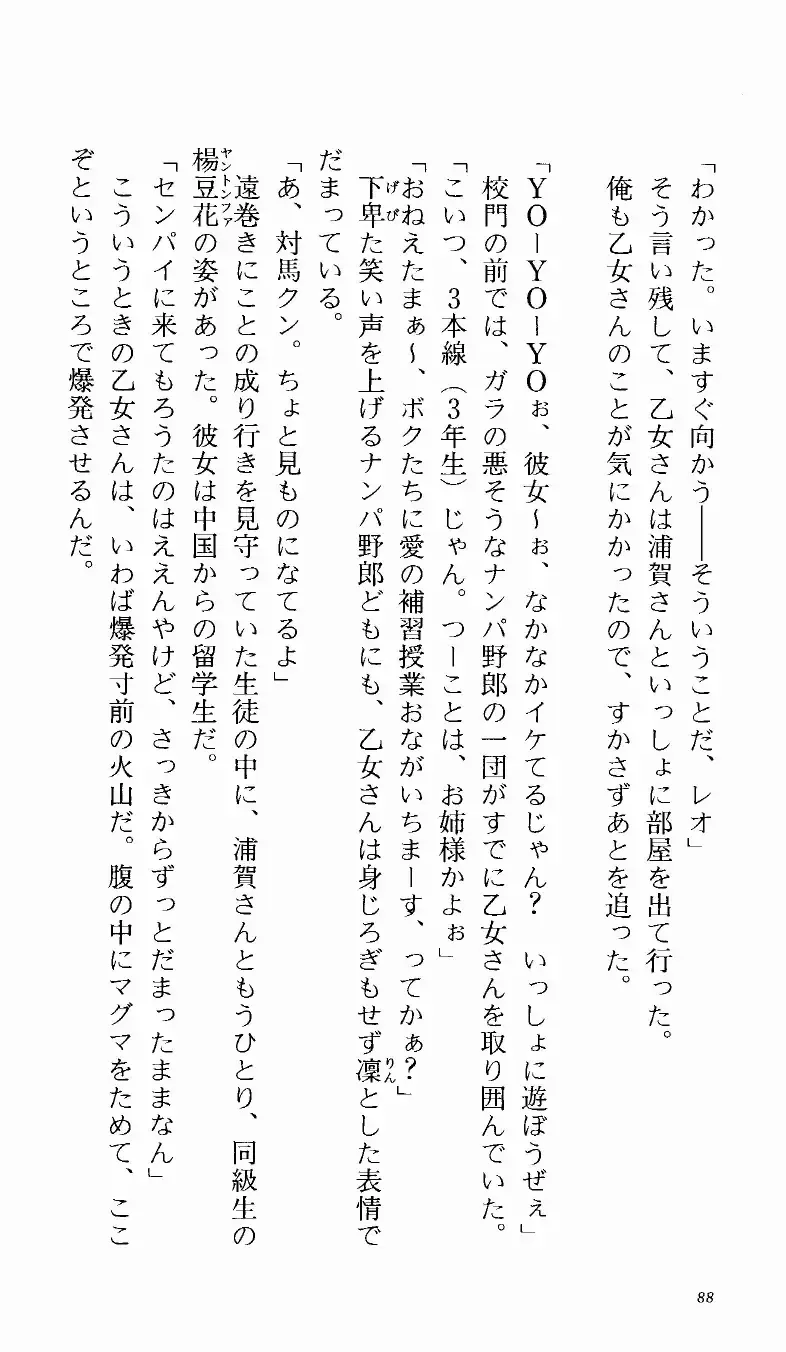 「わかった。いますぐ向かう――そういうことだ、レオ」
そう言い残して、乙女さんは浦賀さんといっしょに部屋を出て行った。
俺も乙女さんのことが気にかかったので、すかさずあとを追った。
「ＹＯーＹＯーＹＯぉ、彼女～ぉ、なかなかイケてるじゃん？　いっしょに遊ぼうぜぇ」
校門の前では、ガラの悪そうなナンパ野郎の一団がすでに乙女さんを取り囲んでいた。
「こいつ、３本線（３年生）じゃん。つーことは、お姉様かよぉ」
「おねえたまぁ～、ボクたちに愛の補習授業おながいちまーす、ってかぁ？」
下卑た笑い声を上げるナンパ野郎どもにも、乙女さんは身じろぎもせず凛とした表情で
だまっている。
「あ、対馬クン。ちょと見ものになてるよ」
遠巻きにことの成り行きを見守っていた生徒の中に、浦賀さんともうひとり、同級生の
楊豆花の姿があった。彼女は中国からの留学生だ。
「センパイに来てもろうたのはええんやけど、さっきからずっとだまったままなん」
こういうときの乙女さんは、いわば爆発寸前の火山だ。腹の中にマグマをためて、ここ
ぞというところで爆発させるんだ。
げび
りん
ヤントンファ
88